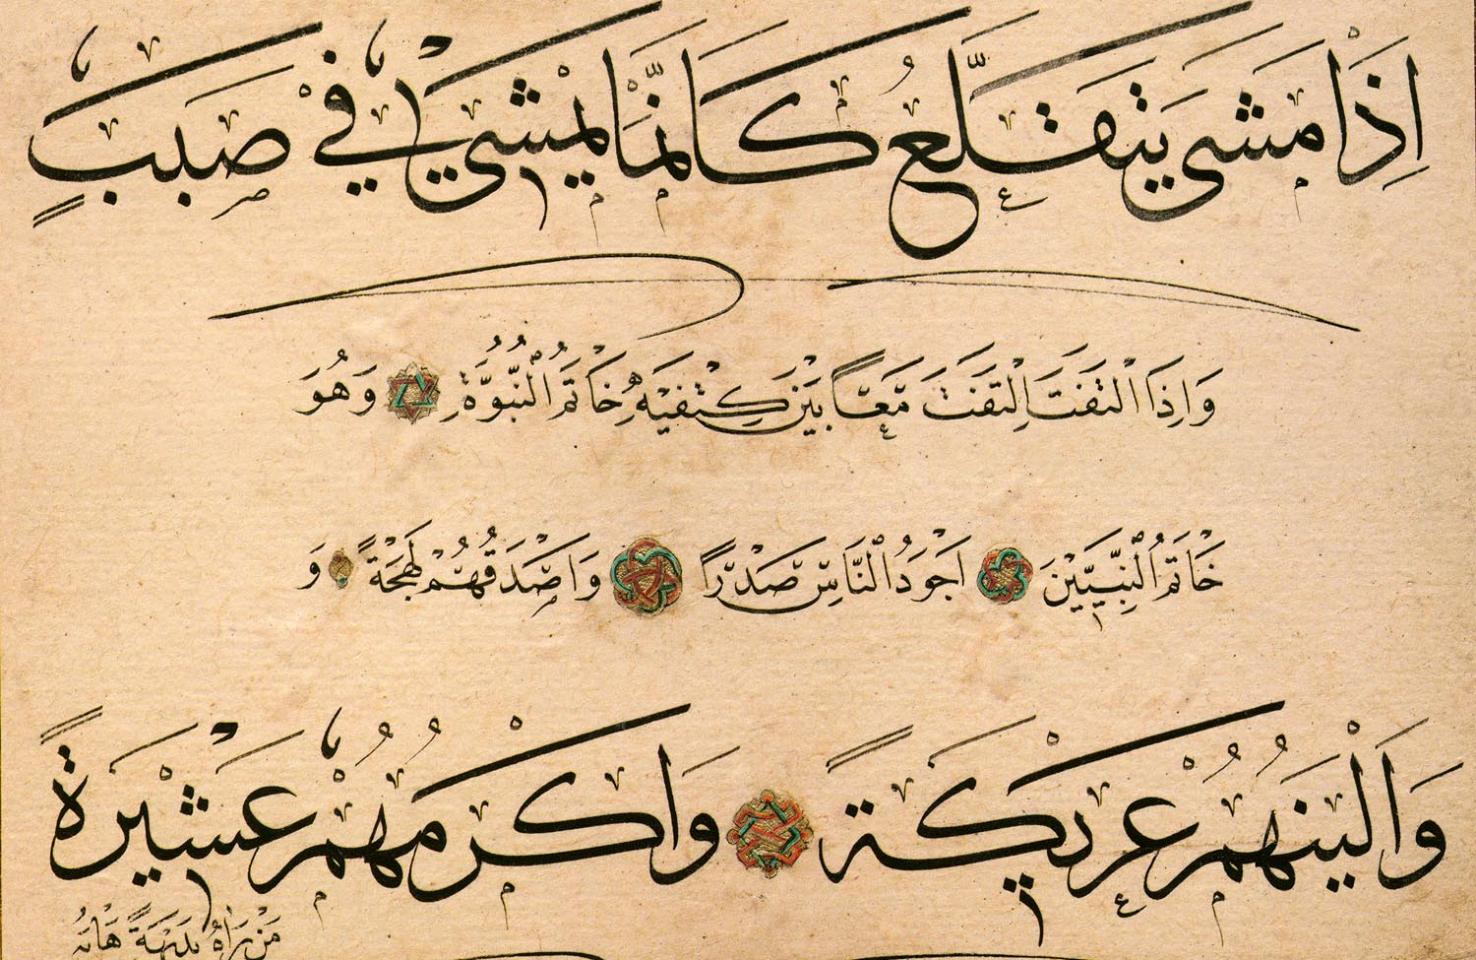 اِذَا مَشَى يَتَقَلَّعُ كَاَنَّمَا يَمْشِي فِي صَبَبٍ
وَاِذَا الْتَفَتَ اِلْتَفَتَ مَعًا بَيْنَ كِتْفَيْهِ خَاتَمُ النُّبُوَّةِ وَهُوَ
خَاتَمُ النَّبِيِّينَ اَجْوَدُ النَّاسِ صَدْرًا وَاَصْدَقُهُمْ لَهْجَةً وَ
وَاَلْيَنُهُمْ عَرِيكَةً وَاَكْرَمُهُمْ عَشِيرَةً
مَنْ رَاٰهُ بَدِيهَةً هَابَهُ